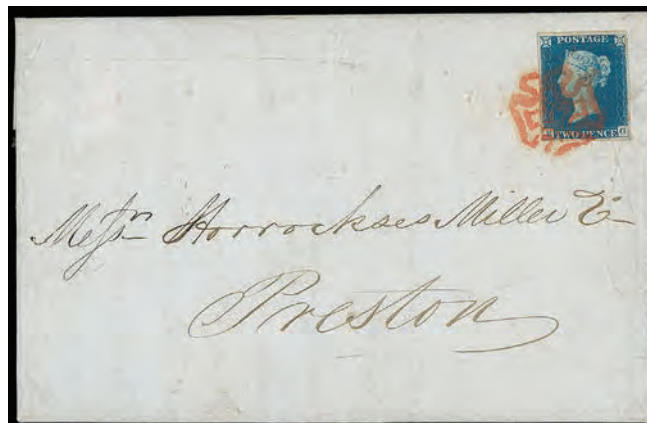 POSTAGE
TWO PENCE
Messrs Horrockses Miller &
Preston